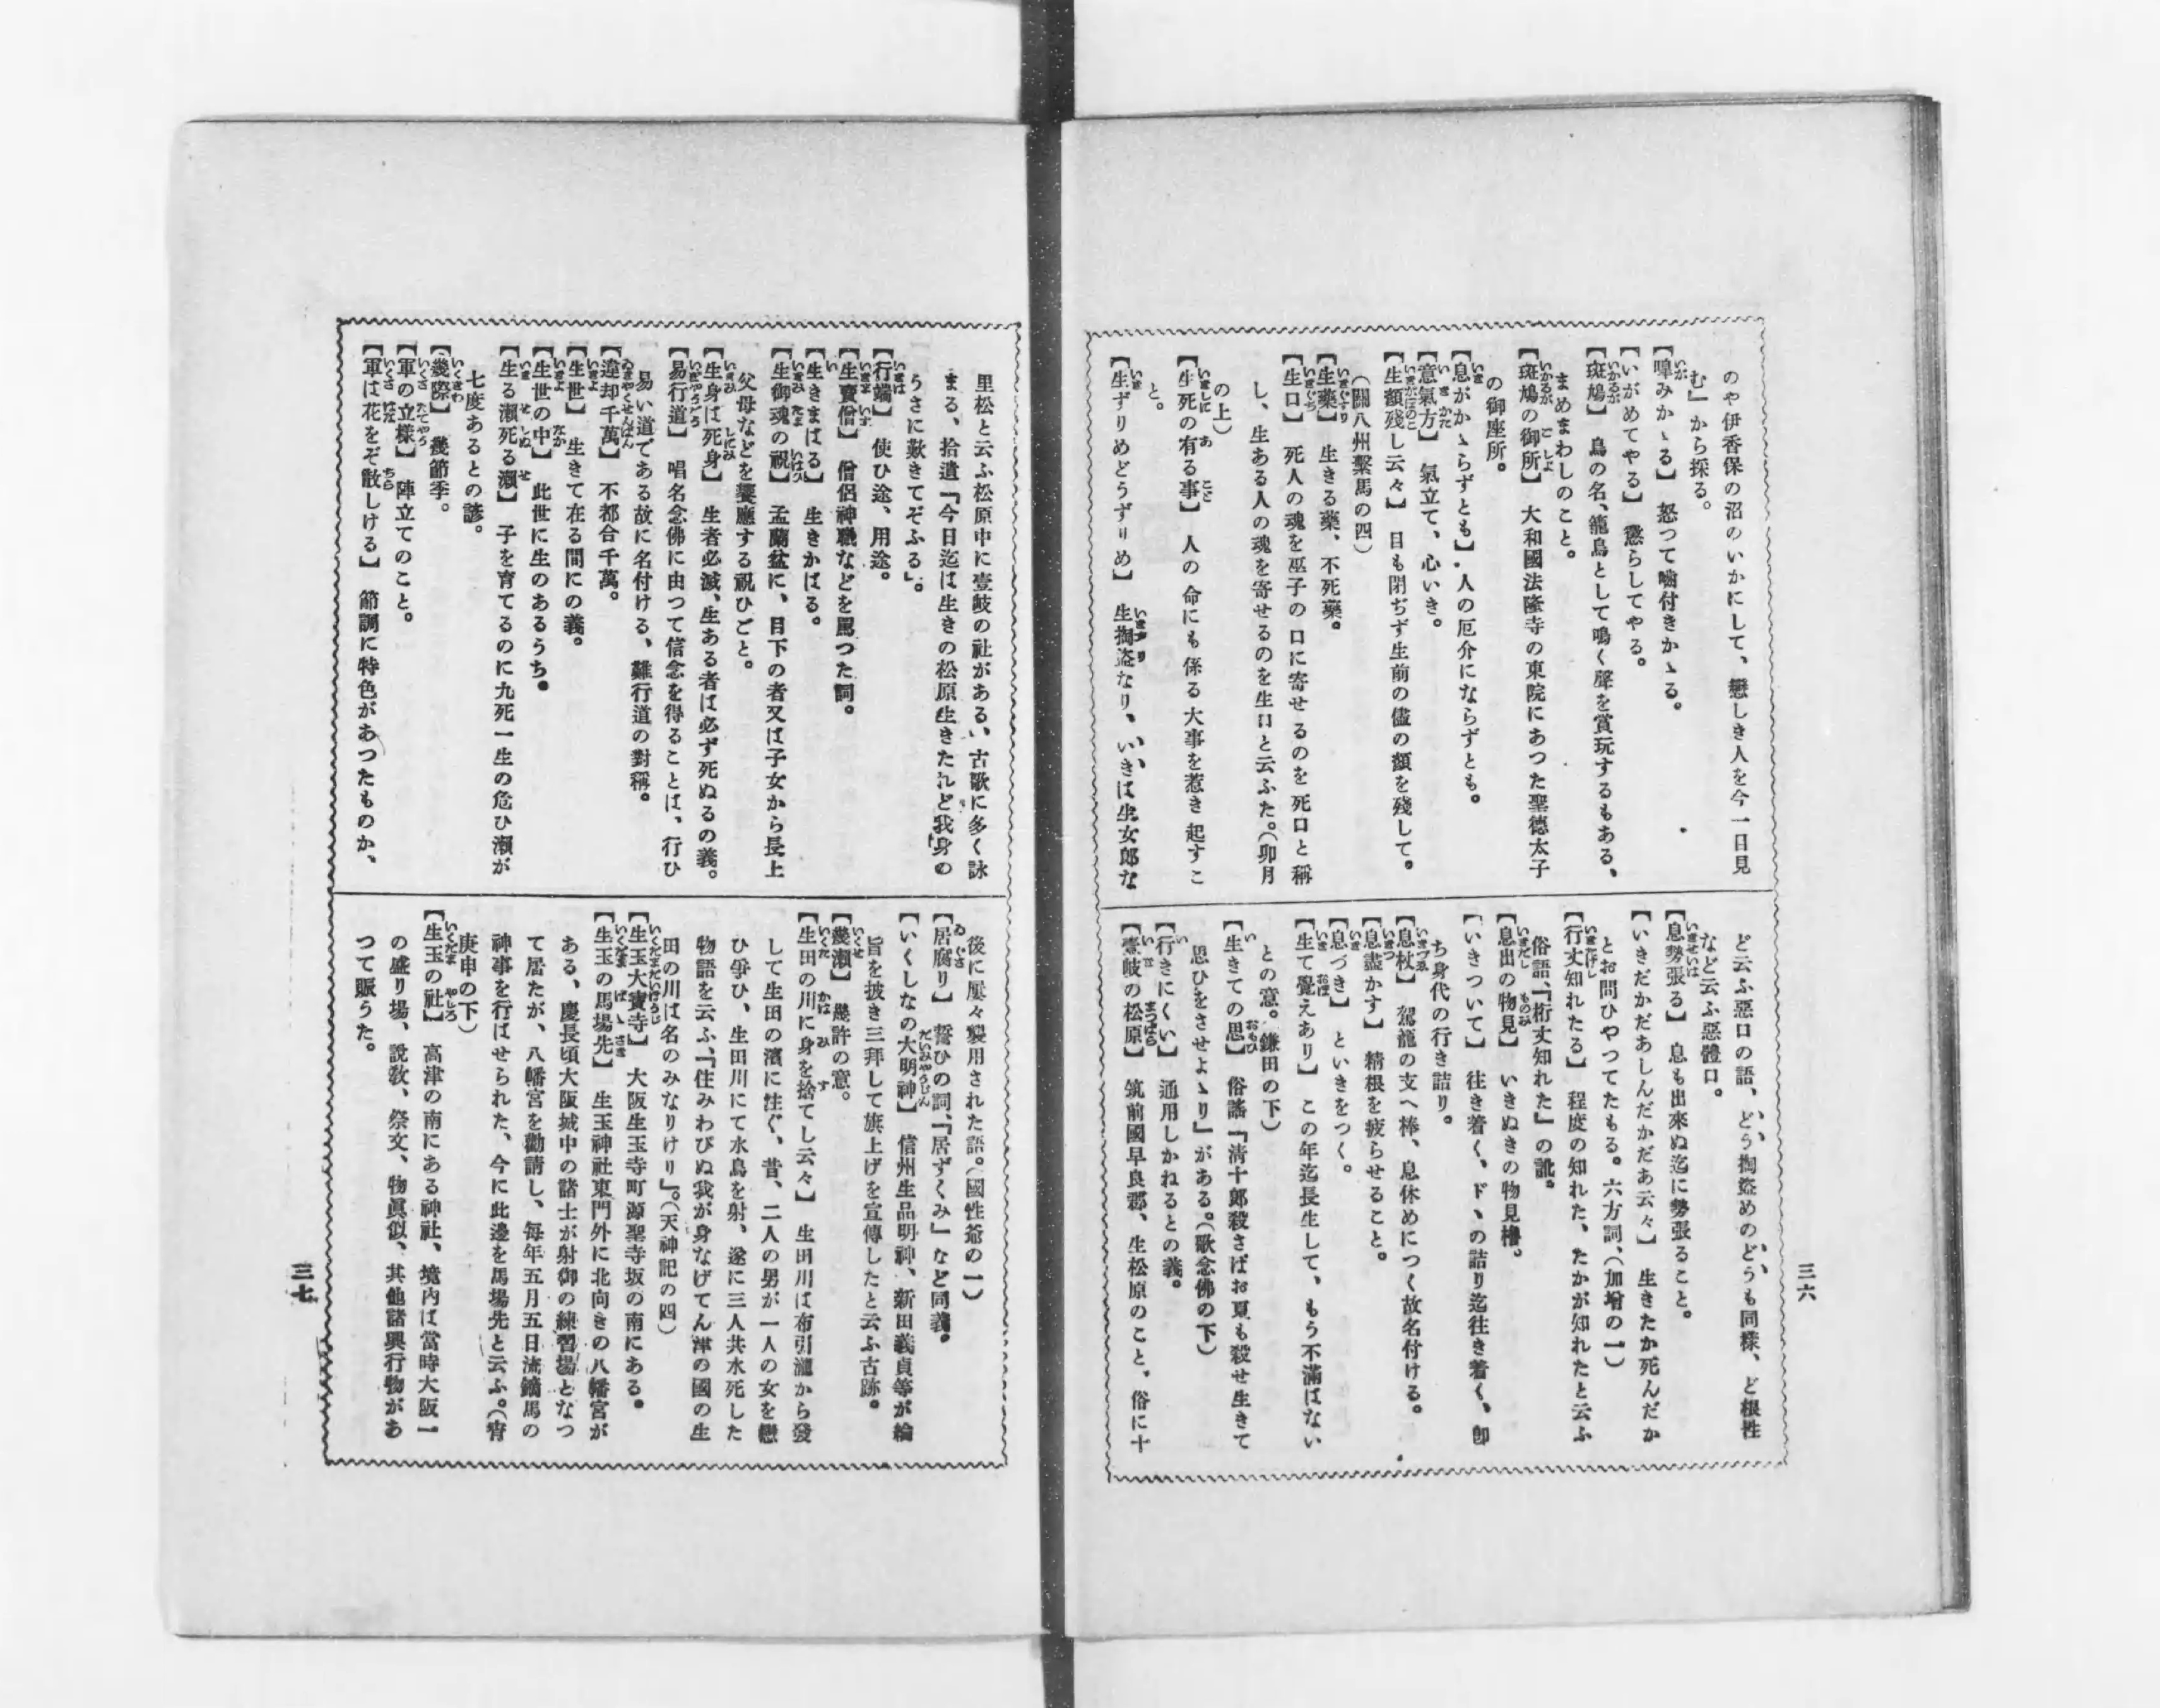 のや伊香保の沼のいかにして、戀しき人を今一日見
む』から採る。
【嘷みかゝる】 怒つて噛付きかゝる。
【いがめてやる】 懲らしてやる。
【斑鳩】 鳥の名、籠鳥として鳴く聲を賞玩するもある、
まめまわしのこと。
【斑鳩の御所】 大和國法隆寺の東院にあつた聖德太子
の御座所。
【息がかゝらずとも】 人の厄介にならずとも。
【意氣方】 氣立て、心いき。
【生顏殘し云々】 目も閉ぢず生前の儘の顏を殘して。
(關八州繫馬の四)
【生藥】 生きる藥、不死藥。
【生口】 死人の魂を巫子の口に寄せるのを死口と稱
し、生ある人の魂を寄せるのを生口と云ふた。(卯月
の上)
【生死の有る事】 人の命にも係る大事を惹き起すこ
と。
【生ずりめどうずりめ】 生掏盜なり、いきは生女郎な
ど云ふ惡口の語、どう掏盜めのどうも同樣、ど根性
など云ふ惡體口。
【息勢張る】 息も出來ぬ迄に勢張ること。
【いきだかだあしんだかだあ云々】 生きたか死んだか
とお問ひやつてたもる。六方詞、(加增の一)
【行丈知れたる】 程度の知れた、たかが知れたと云ふ
俗語、『桁丈知れた』の訛。
【息出の物見】 いきぬきの物見櫓。
【いきついて】 往き着く、ド、の詰り迄往き着く、卽
ち身代の行き詰り。
【息杖】 駕籠の支へ棒、息休めにつく故名付ける。
【息盡かす】 精根を疲らせること。
【息づき】 といきをつく。
【生て覺えあり】 この年迄長生して、もう不滿はない
との意。鎌田の下)
【生きての思】 俗謠『淸十郞殺さばお夏も殺せ生きて
思ひをさせよゝり』がある。(歌念佛の下)
【行きにくい】 通用しかねるとの義。
【壹岐の松原】 筑前國早良郡、生松原のこと、俗に十
三六
里松と云ふ松原中に壹岐の社がある、古歌に多く詠
まる、拾遺『今日迄は生きの松原生きたれど我身の
うさに歎きてぞふる』。
【行端】 使ひ途、用途。
【生賣僧】 僧侶神職などを罵つた詞。
【生きまはる】 生きかはる。
【生御魂の祝】 盂蘭盆に、目下の者又は子女から長上
父母などを饗應する祝ひごと。
【生身は死身】 生者必滅、生ある者は必ず死ぬるの義。
【易行道】 唱名念佛に由つて信念を得ることは、行ひ
易い道である故に名付ける、難行道の對稱。
【違却千萬】 不都合千萬。
【生世】 生きて在る間にの義。
【生世の中】 此世に生のあるうち。
【生る瀨死る瀨】 子を育てるのに九死一生の危ひ瀨が
七度あるとの諺。
【幾際】 幾節季。
【軍の立樣】 陣立てのこと。
【軍は花をぞ散しける】 節調に特色があつたものか、
後に屢々襲用された語。(國性爺の一)
【居腐り】 誓ひの詞、『居ずくみ』など同義。
【いくしなの大明神】 信州生品明神、新田義貞等が綸
旨を披き三拜して旗上げを宣傳したと云ふ古跡。
【幾瀨】 幾許の意。
【生田の川に身を捨てし云々】 生田川は布引瀧から發
して生田の濱に注ぐ、昔、二人の男が一人の女を戀
ひ爭ひ、生田川にて水鳥を射、遂に三人共水死した
物語を云ふ、『住みわびぬ我が身なげてん津の國の生
田の川は名のみなりけり』。(天神記の四)
【生玉大寶寺】 大阪生玉寺町源聖寺坂の南にある。
【生玉の馬場先】 生玉神社東門外に北向きの八幡宮が
ある、慶長頃大阪城中の諸士が射御の練習場となつ
て居たが、八幡宮を勸請し、每年五月五日流鏑馬の
神事を行はせられた、今に此邊を馬場先と云ふ。(宵
庚申の下)
【生玉の社】 高津の南にある神社、境內は當時大阪一
の盛り場、說敎、祭文、物眞似、其他諸興行物があ
つて賑うた。
三七